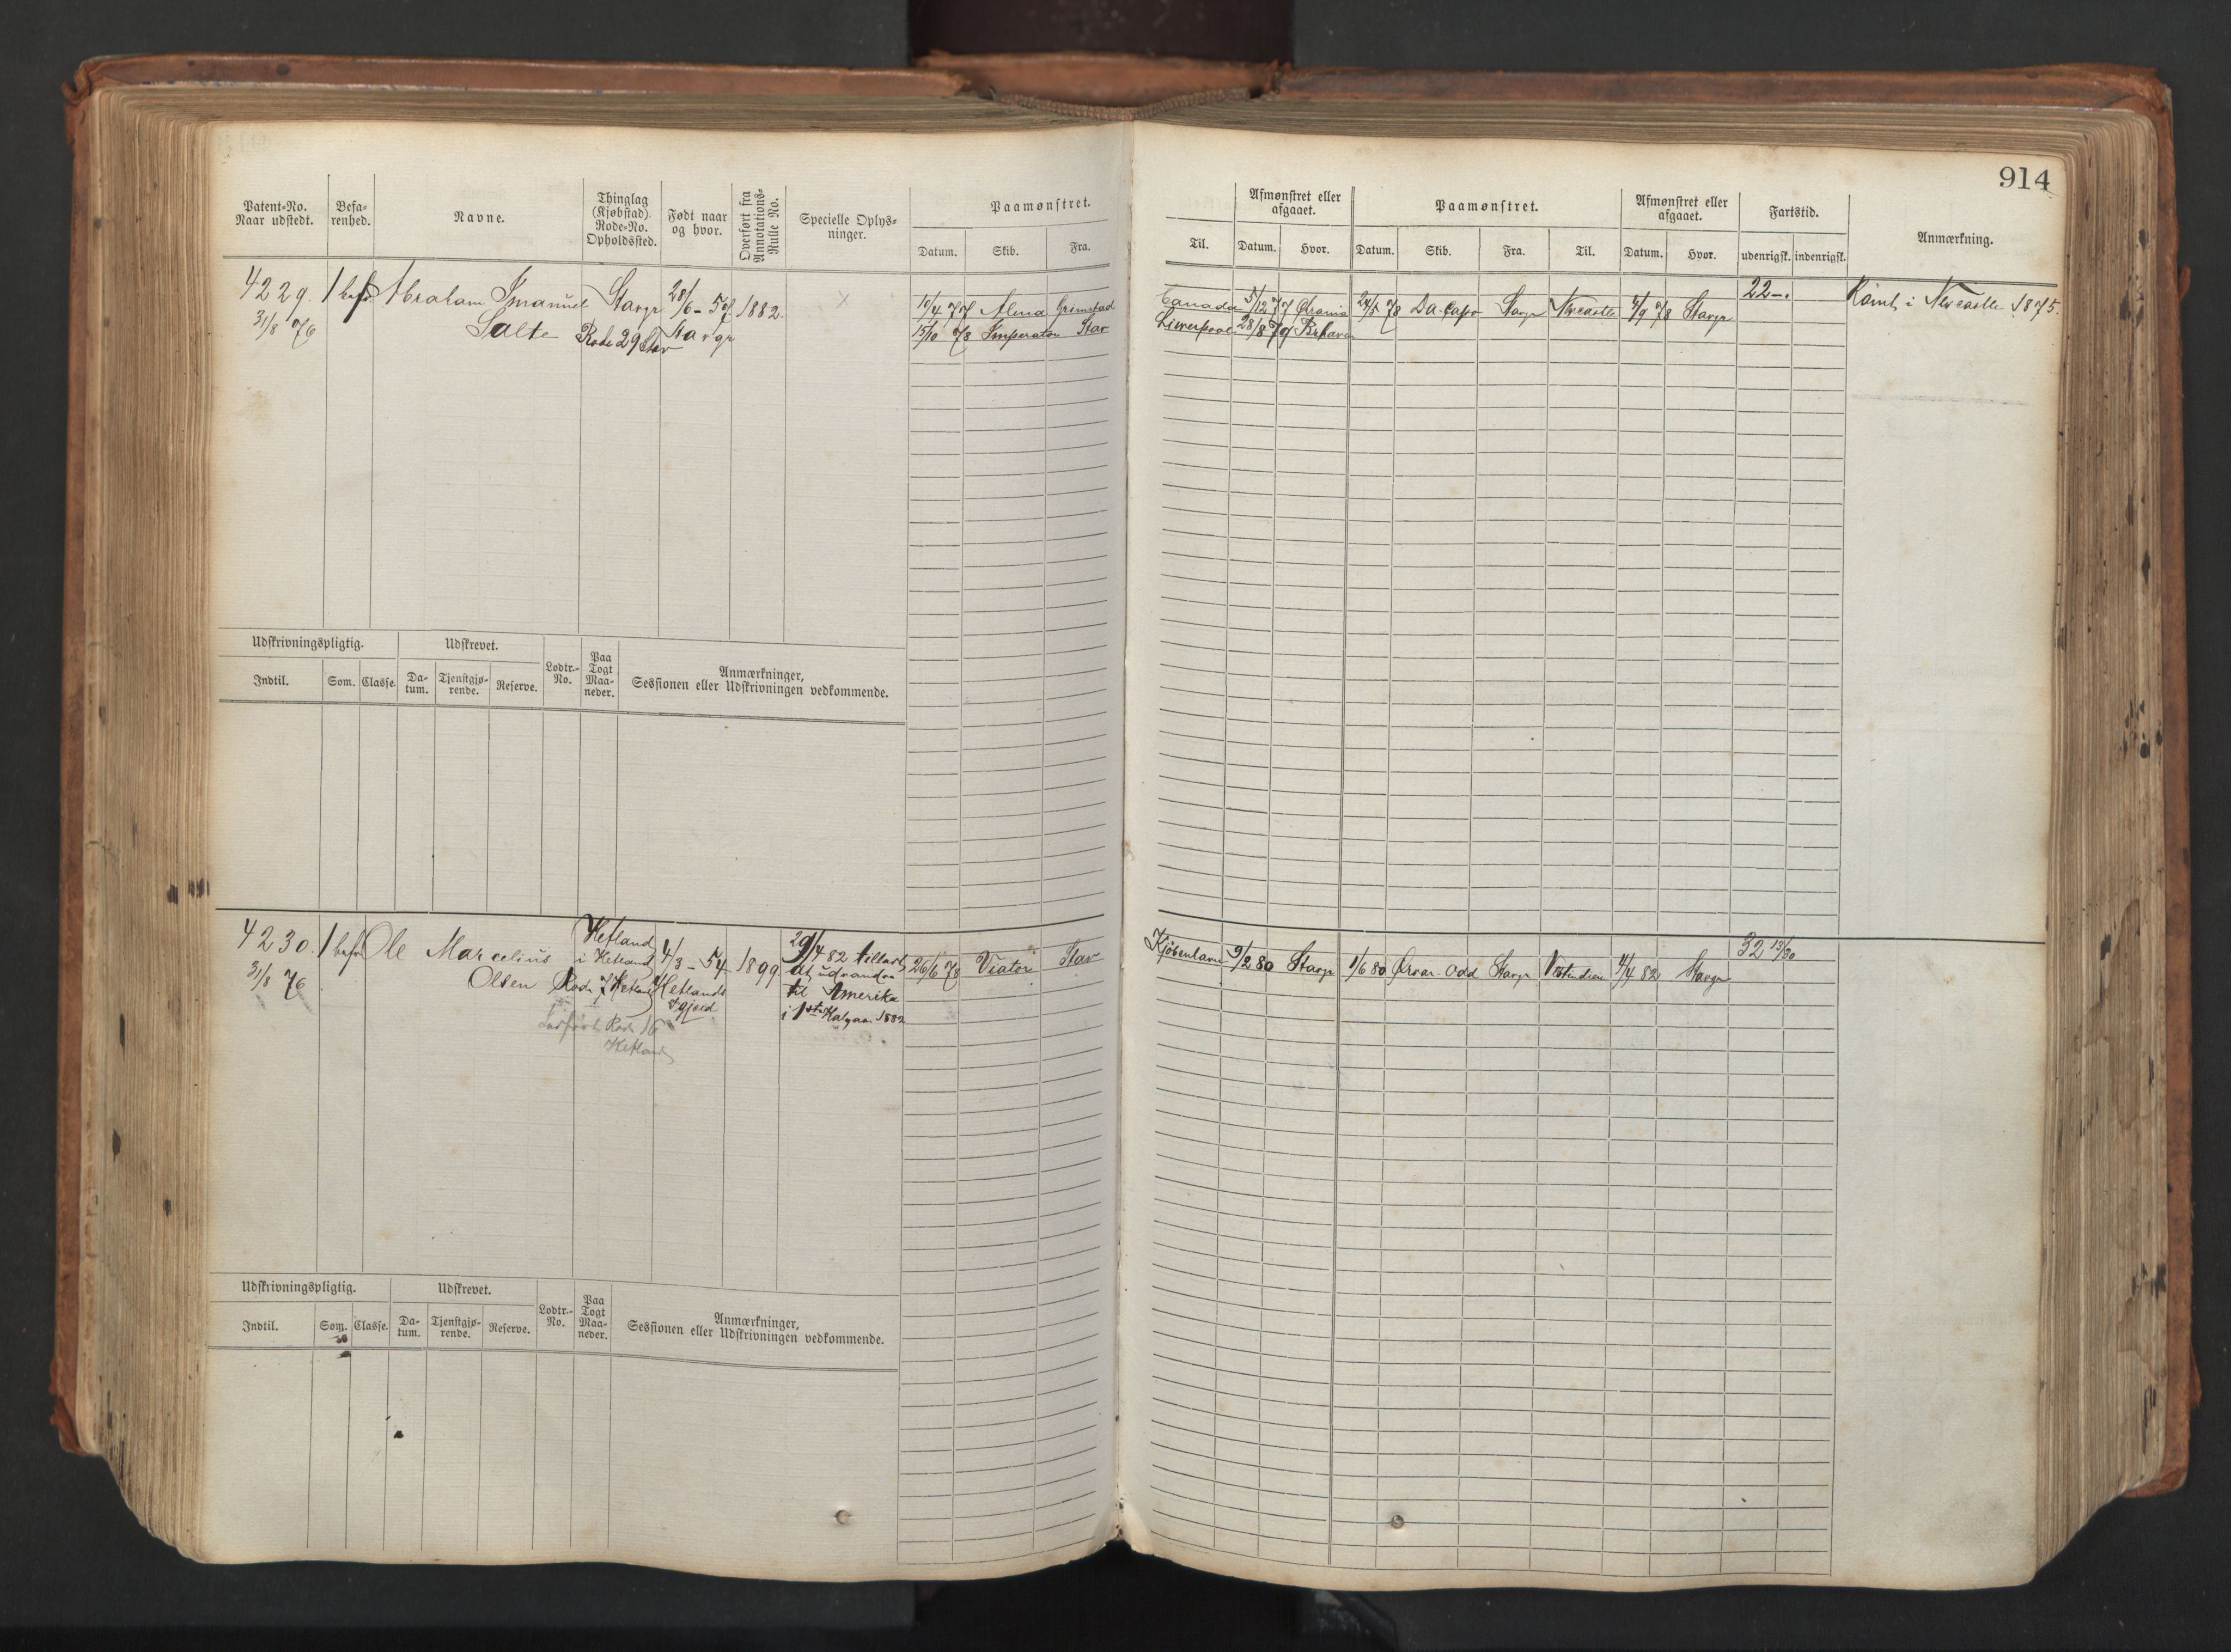 914
Patent-No.
Naar udstedt.
Befa-
renhed.
Navne.
Thinglag
(Kjøbstad)
Rode-No.
Opholdssted.
Født naar
og hvor.
Overført fra
Annotations-
Rulle No.
Specielle Oplys-
ninger.
Paamønstret.
Datum. Skib. Fra.
Til.
Afmønstret eller
afgaaet.
Datum. Hvor.
Paamønstret.
Datum. Skib. Fra. Til.
Afmønstret eller
afgaaet.
Datum. Hvor.
Fartstid.
udenrigsk. indenrigsk.
Anmærkning.
4229.
31/8 76
1 bef
Abraham Imanuel
Salte
Stavgr
Rode 29 Stav
28/6 - 57
Stavgr
1882.
X
10/4 77 Alma Grimstad
15/10 78 Imperator Stav
Canada 5/12 77
Liverpool 28/8 79
24/5 78 Da Capo Stavgr Newcastle 4/9 78 Stavgr
22 - .
Rømt i Newcastle 1875.
Udskrivningspligtig.
Indtil. Som. Classe.
Udskrevet.
Da-
tum.
Tjenstgjø-
rende.
Reserve.
Lodtr.-
No.
Paa
Togt
Maa-
neder.
Anmærkninger,
Sessionen eller Udskrivningen vedkommende.
4230.
31/8 76
1 bef
Ole Marcelius
Olsen
Hetland
i Hetland
Rode 7 Hetland
Rode 16
Hetland
4/3 - 54
Hetlands
1899
29/4 82 tilladt
at udvandre
til Amerika
i 1ste Halvaar 1882
26/6 78 Viator Stav
Kjøbenhavn 9/2 80 Stavgr
1/6 80 Ørvar-Odd Stavgr Vestindien 4/4 82 Stavgr
32 13/30
Udskrivningspligtig.
Indtil. Som. Classe.
Udskrevet.
Da-
tum.
Tjenstgjø-
rende.
Reserve.
Lodtr.-
No.
Paa
Togt
Maa-
neder.
Anmærkninger,
Sessionen eller Udskrivningen vedkommende.